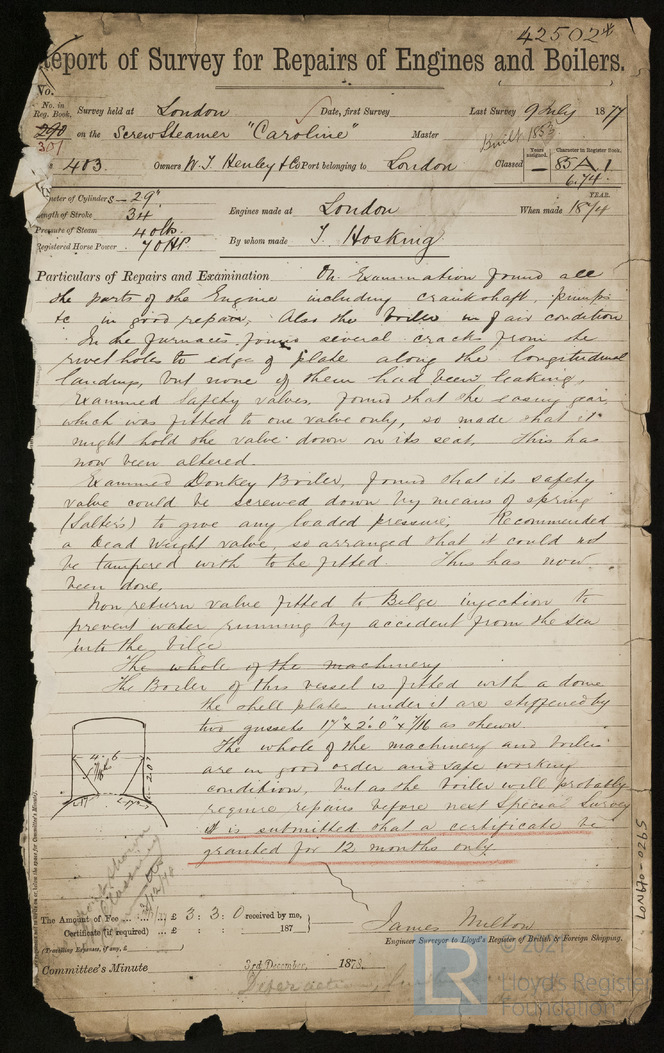 42502
Report of Survey for Repairs of Engines and Boilers.
No.
No. in Reg. Book. Survey held at London Date, first Survey Last Survey 9 July 1877
290 on the Screw Steamer "Caroline" Master Built 1853
301
403. Owners W. T. Henley & Co Port belonging to London Classed Years assigned. Character in Register Book. 85 A 1
6.74.
Diameter of Cylinders – 29" YEAR.
Length of Stroke 34 Engines made at London When made 1874
Pressure of Steam 40 lbs.
Registered Horse Power 70 HP By whom made T. Hosking
Particulars of Repairs and Examination On Examination found all
the parts of the Engine including crankshaft, pumps
&c in good repair, Also the boiler in fair condition
In the furnaces found several cracks from the
rivet holes to edge of plate along the longitudinal
landings, but none of them had been leaking,
Examined Safety valves, found that the easing gear,
which was fitted to one valve only, so made that it
might hold the valve down on its seat, This has
now been altered.
Examined Donkey Boiler, found that its safety
valve could be screwed down by means of spring
(Salter's) to give any loaded pressure; Recommended
a Dead Weight valve, so arranged that it could not
be tampered with to be fitted. This has now
been done.
Non return valve fitted to Bilge injection to
prevent water running by accident from the sea
into the bilge
The whole of the machinery
The Boiler of this vessel is fitted with a dome
the shell plates under it are stiffened by
two gussets 17" x 2'.0" x 7/16 as shewn.
The whole of the machinery and boiler
are in good order and safe working
condition, but as the boiler will probably
require repairs before next Special Survey
it is submitted that a certificate be
granted for 12 months only.
4.6
2.0"
17"
LON670-0265
The Amount of Fee £ 3 : 3 : 0 received by me,
Certificate (if required) £ : : 187
(Travelling Expenses, if any, £ )
James Milton
Engineer Surveyor to Lloyd's Register of British & Foreign Shipping.
Committee's Minute 3rd December, 1878.
LR
© 2021
Lloyd's Register
Foundation